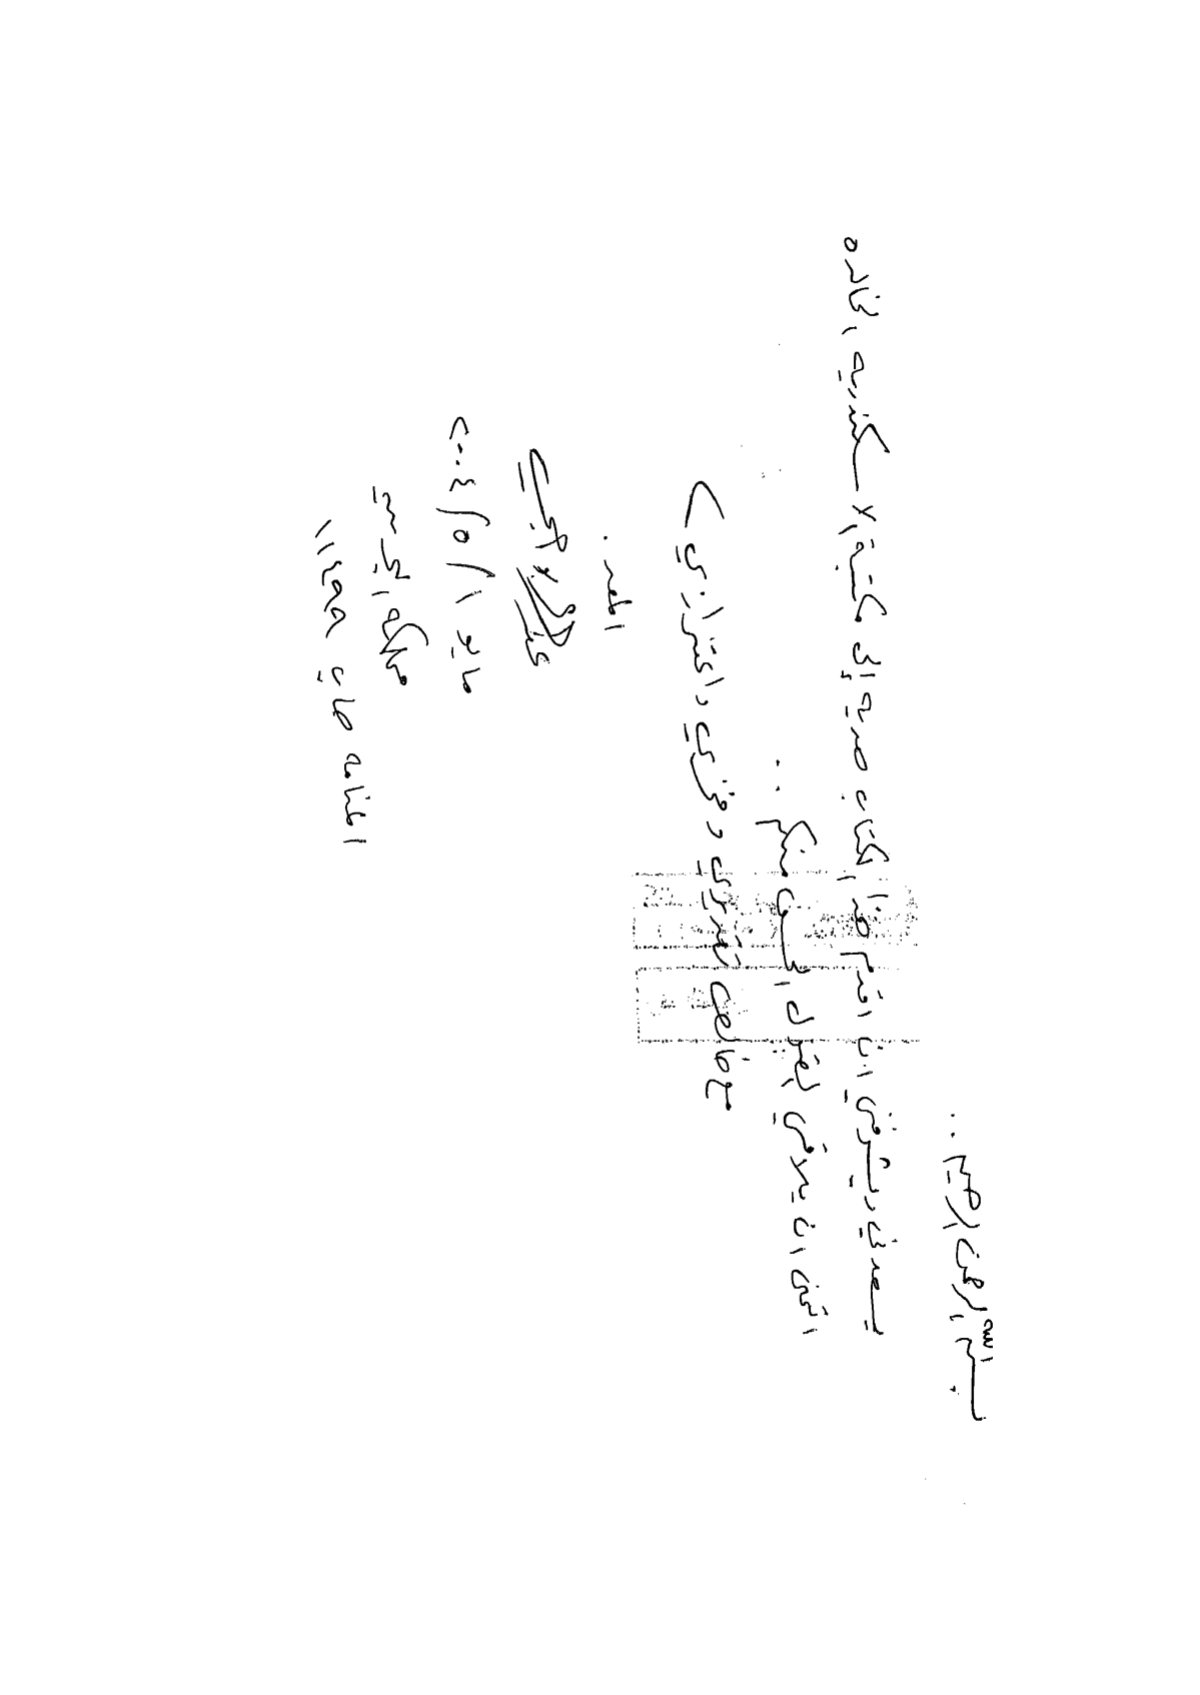 بسم الله الرحمن الرحيم ..
يسعدني ويشرفني ان اقدم هذا الكتاب هدية إلى مكتبة الاسكندريه الخالده
اتمنى ان يلاقي القبول الحسن منكم ..
مع خالص تقديري وفخري واعتزازي
المعد .
مايو ١ / ٥ / ٢٠٠٤
مملكة البحرين
المنامه ص.ب ١١٤٩٩